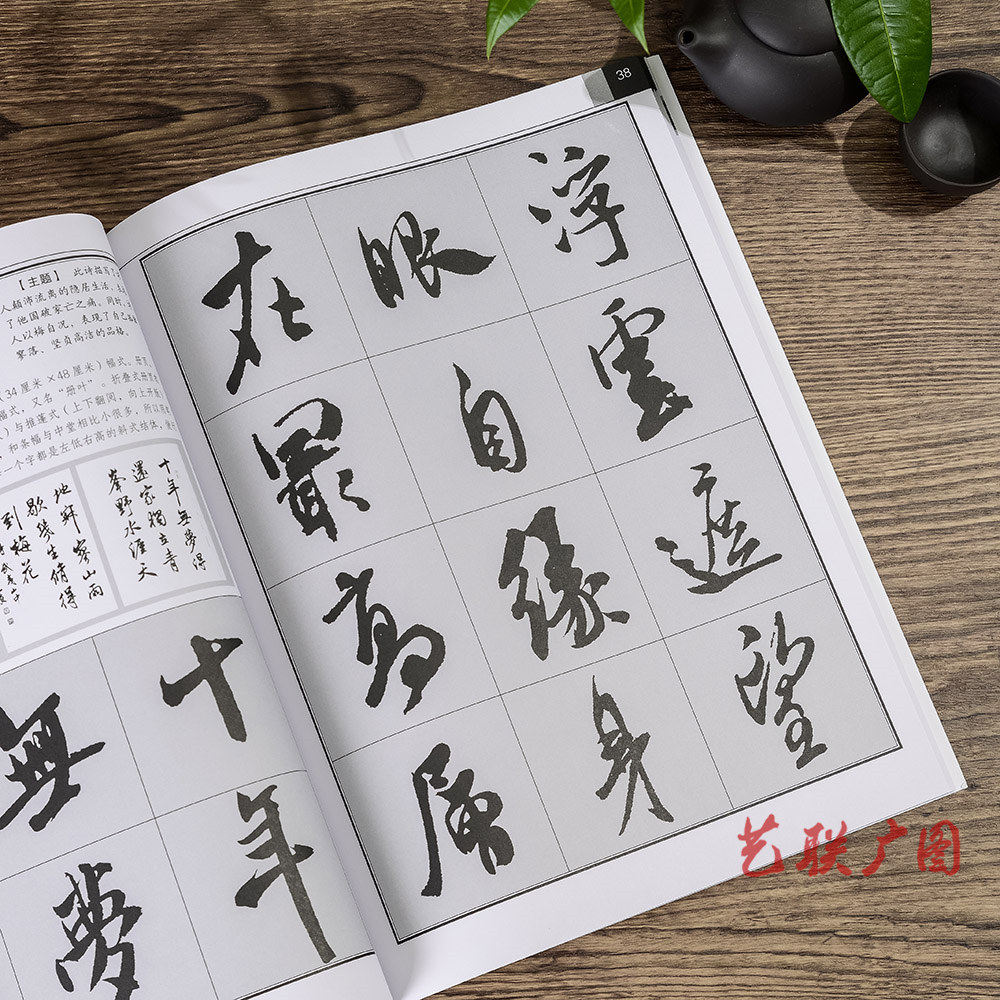 38
浮雲遮望
眼自緣身
在最高層
【主题】 此诗描写了
人颠沛流离的隐居生活,
了他国破家亡之痛。同时,
人以梅自况,表现了自己
寥落、坚贞高洁的品格。
(34厘米×48厘米)幅式。册页
幅式,又名“册叶”。折叠式册页
)与推蓬式(上下翻阅,向上开
,和条幅与中堂相比小很多,所以
一个字都是左低右高的斜式结体,
十年無夢得
還家獨立青
峯野水涯天
地寂寥山雨
歇幾生修得
到梅花
十年
無夢
艺联广图